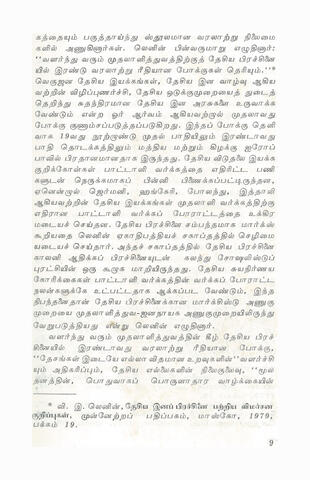 கத்தையும் பகுத்தாய்ந்து ஸ்தூலமான வரலாற்று நிலைமை
களில் அணுகினார்கள். லெனின் பின்வருமாறு எழுதினார்:
''வளர்ந்து வரும் முதலாளித்துவத்திற்குத் தேசிய பிரச்சினை
யில் இரண்டு வரலாற்று ரீதியான போக்குகள் தெரியும்.''*
வெகுஜன தேசிய இயக்கங்கள், தேசிய இன வாழ்வு ஆகிய
வற்றின் விழிப்புணர்ச்சி, தேசிய ஒடுக்குமுறையைத் துடைத்
தெறிந்து சுதந்திரமான தேசிய இன அரசுகளை உருவாக்க
வேண்டும் என்ற ஓர் ஆர்வம் ஆகியவற்றால் முதலாவது
போக்கு குணாம்சப்படுத்தப்படுகிறது. இந்தப் போக்கு தெளி
வாக 19வது நூற்றாண்டு முதல் பாதியிலும் இரண்டாவது
பாதி தொடக்கத்திலும் மத்திய மற்றும் கிழக்கு ஐரோப்
பாவில் பிரதானமானதாக இருந்தது. தேசிய விடுதலை இயக்க
குறிக்கோள்கள் பாட்டாளி வர்க்கத்தை எதிரிட்ட பணி
களுடன் நெருக்கமாகப் பின்னி பிணைக்கப்பட்டிருந்தன,
ஏனென்றால் ஜெர்மனி, ஹங்கேரி, போலந்து, இத்தாலி
ஆகியவற்றின் தேசிய இயக்கங்கள் முதலாளி வர்க்கத்திற்கு
எதிரான பாட்டாளி வர்க்கப் போராட்டத்தை உக்கிர
மடையச் செய்தன. தேசிய பிரச்சினை சம்பந்தமாக மார்க்ஸ்
கூறியதை லெனின் ஏகாதிபத்திய சகாப்தத்தில் செழுமை
யடையச் செய்தார். அந்தச் சகாப்தத்தில் தேசிய பிரச்சினை
காலனி ஆதிக்கப் பிரச்சினையுடன் கலந்து சோஷலிஸ்டுப்
புரட்சியின் ஒரு கூறாக மாறியிருந்தது. தேசிய சுயநிர்ணய
கோரிக்கைகள் பாட்டாளி வர்க்கத்தின் வர்க்கப் போராட்ட
நலன்களுக்கே உட்பட்டதாக ஆக்கப்பட வேண்டும். இந்த
நிபந்தனைதான் தேசிய பிரச்சினைக்கான மார்க்சிஸ்டு அணுகு
முறையை முதலாளித்துவ-ஜனநாயக அணுகுமுறையிலிருந்து
வேறுபடுத்தியது என்று லெனின் எழுதினார்.
வளர்ந்து வரும் முதலாளித்துவத்தின் கீழ் தேசப் பிரச்சி
னையில் இரண்டாவது வரலாற்று ரீதியான போக்கு,
''தேசங்கள் இடையே எல்லா விதமான உறவுகளின்'' வளர்ச்சி
யும் அதிகரிப்பும், தேசிய எல்லைகளின் நிலைகுலைவு, ''மூல
தனத்தின், பொதுவாகப் பொருளாதார வாழ்க்கையின்
* வி. இ. லெனின், தேசிய இனப் பிரச்சினை பற்றிய விமர்சன
குறிப்புகள், முன்னேற்றப் பதிப்பகம், மாஸ்கோ, 1979,
பக்கம் 19.
9